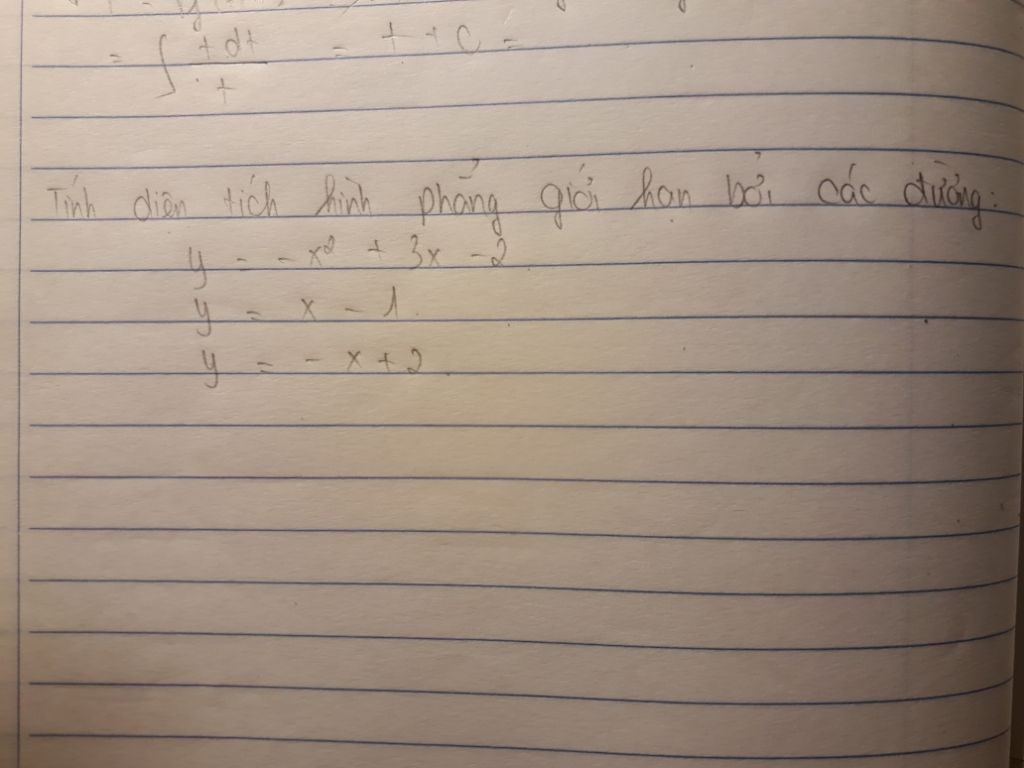 = ∫ tdt/t = t + C =
Tính diện tích hình phẳng giới hạn bởi các đường:
y = -x² + 3x - 2
y = x - 1.
y = - x + 2.